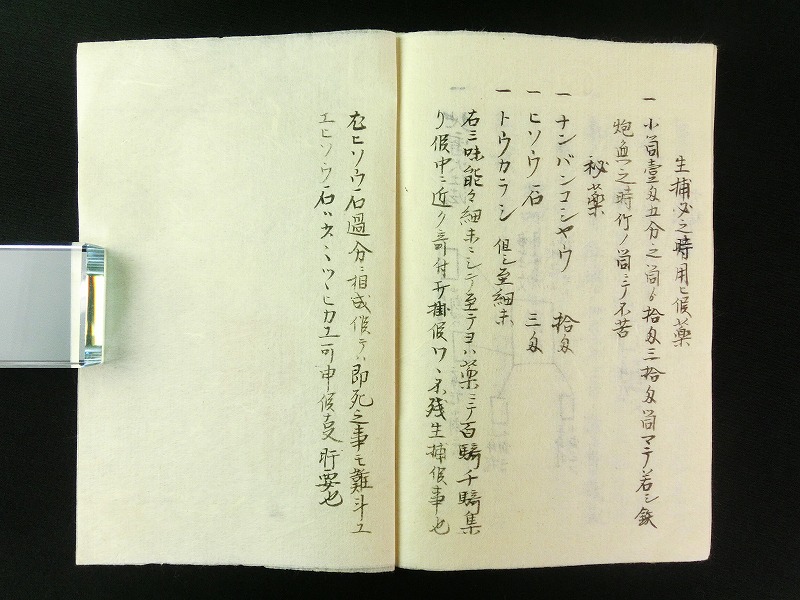 生捕必之時用ヒ候薬
一 小筒壹匁五分之筒ゟ拾匁三拾匁筒マテ若シ鉄
炮無之時竹ノ筒ニテ不苦
秘薬
一 ナンバンコシヤウ 拾匁
一 ヒソウ石 三匁
一 トウカラシ 但シ至細末
右三味能々細末ニシテ至テヨハ薬ニテ百騎千騎集
リ候中ニ近ク寄付打掛候ワハ不残生捕候事也
ヒソウ石過分ニ相成候テハ即死之事モ難斗ユ
エヒソウ石ハ ヒカエ可申候事肝要也